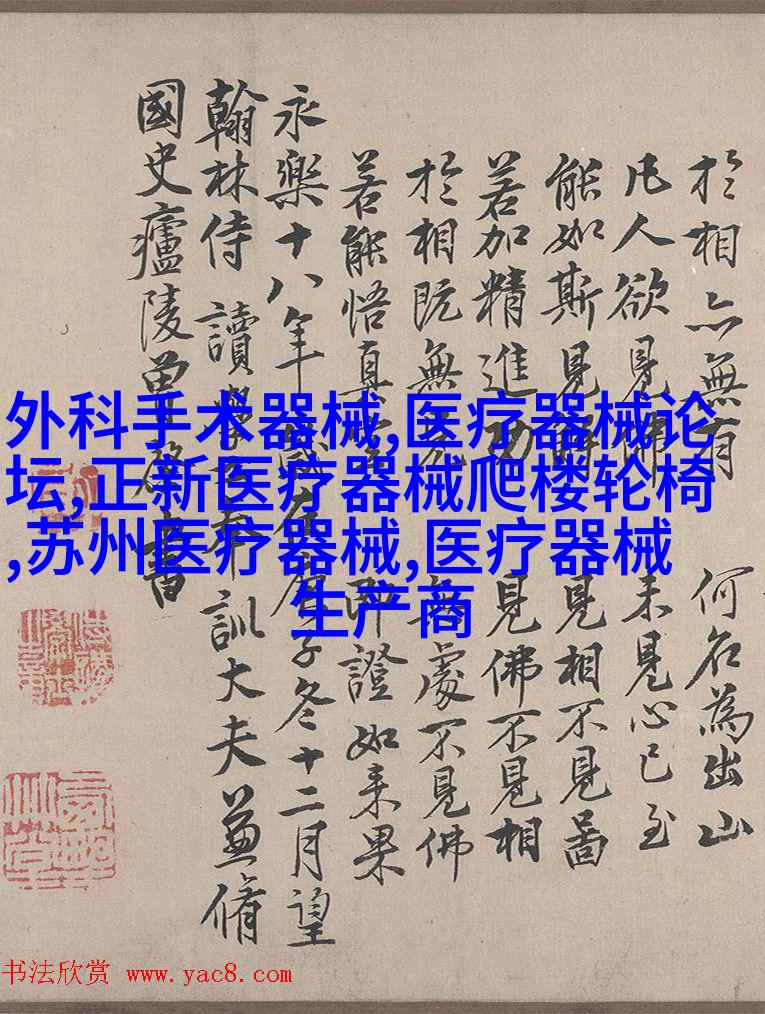 於相亦無有 何名為出山
凡人欲見佛 未見心已至
能如斯見 見相不見啚
若加精進功 見佛不見相
於相既無 無處不見佛
若能悟真空 即證如来果
永樂十八年歲在庚子冬十二月望
翰林侍讀學士奉訓大夫兼脩
國史廬陵曾棨書
外科手术器械,医疗器械论
坛,正新医疗器械爬楼轮椅
,苏州医疗器械,医疗器械
生产商
书法欣赏 www.yac8.com